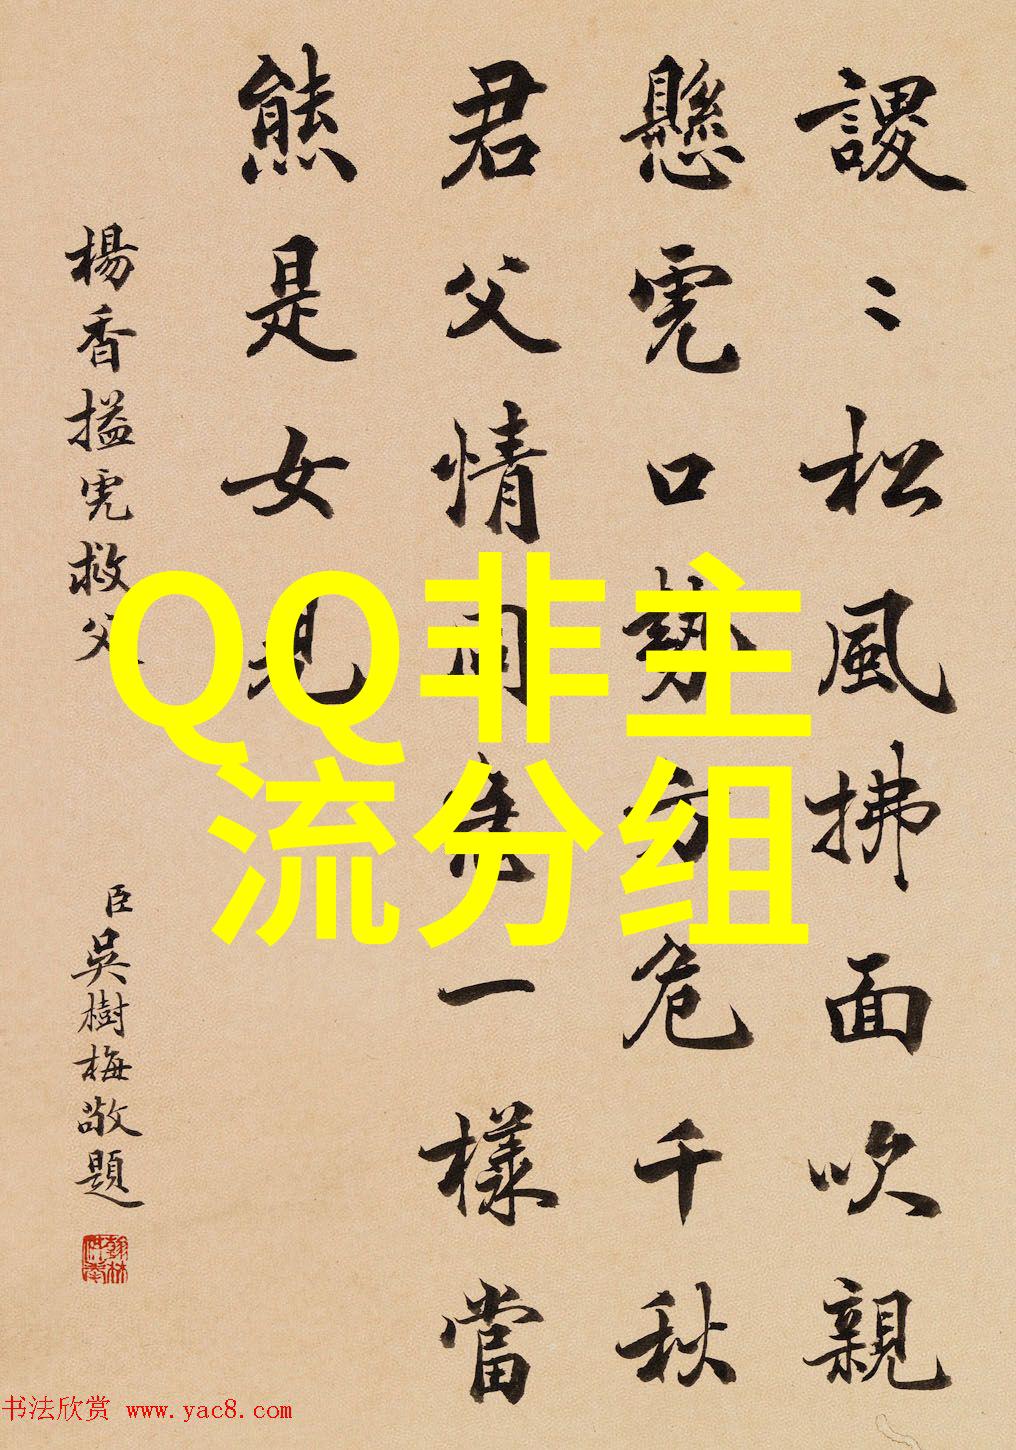 謖〻松風拂面吹親
懸虎口勢方危千秋
君父情同
一樣當
熊是女兒
楊香搤虎救父
臣吳樹梅敬題
QQ非主
流分组
书法欣赏 www.yac8.com